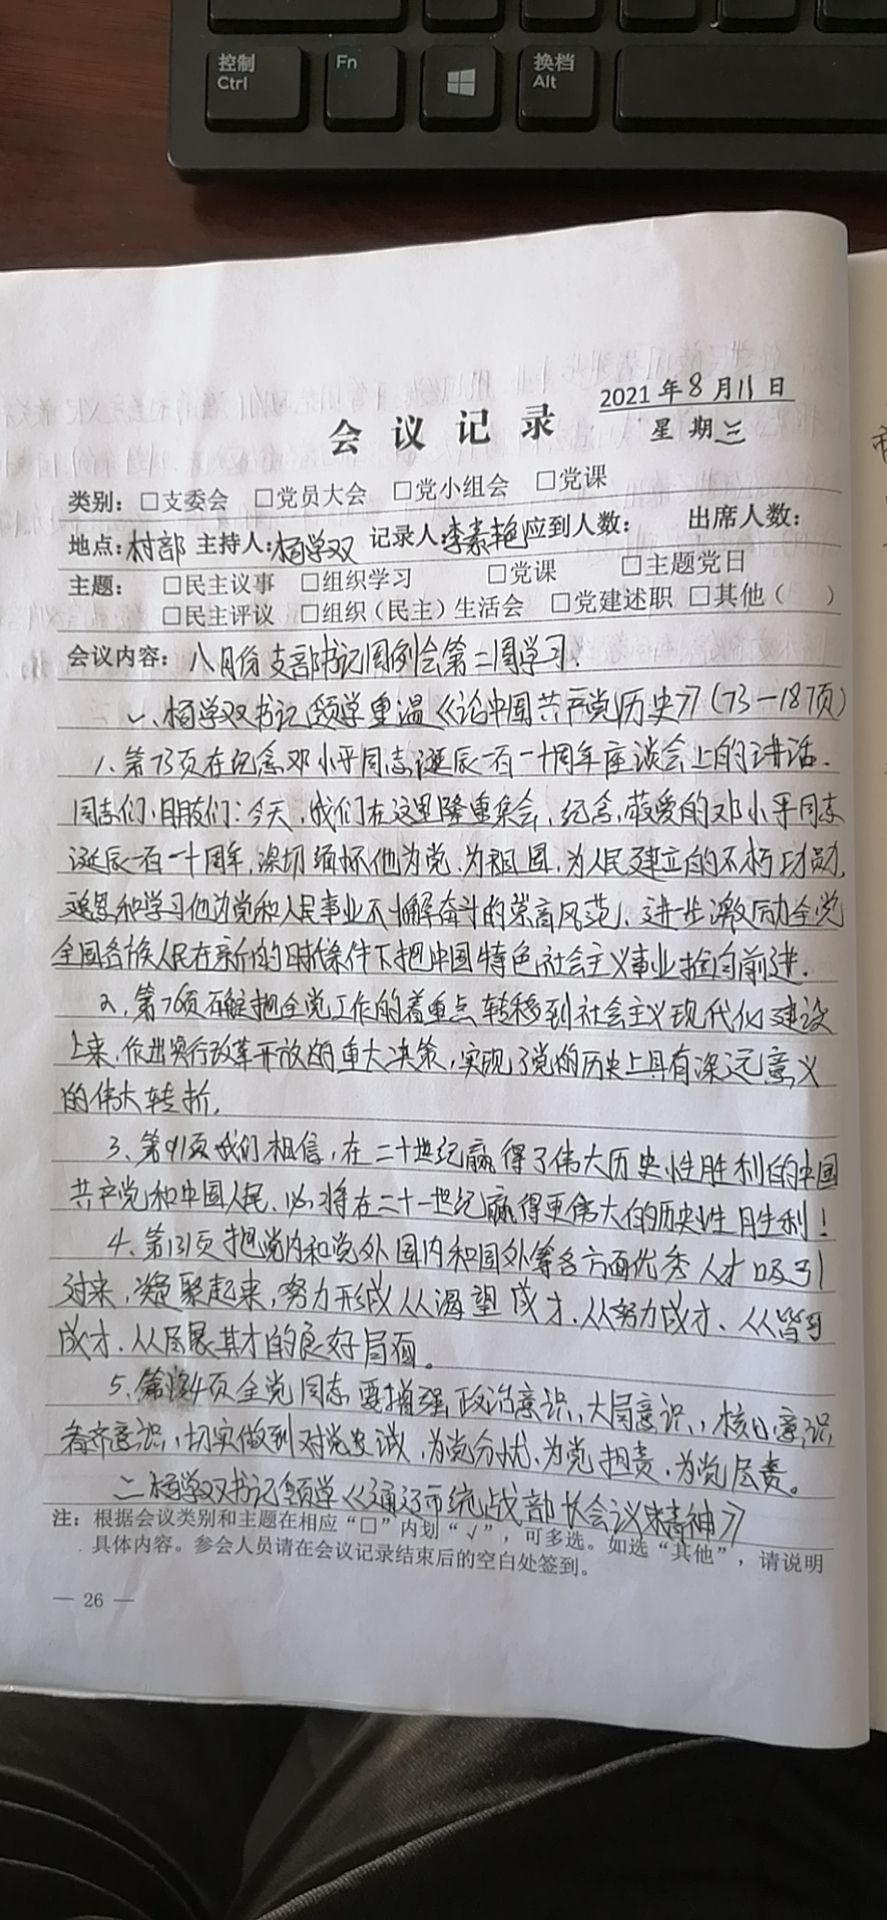 控制
Ctrl
Fn
换档
Alt
2021年8月11日
会议记录
星期三
类别：□支委会 □党员大会 □党小组会 □党课
地点：村部 主持人：杨学双 记录人：李素艳 应到人数： 出席人数：
主题： □民主议事 □组织学习 □党课 □主题党日
□民主评议 □组织（民主）生活会 □党建述职 □其他（ ）
会议内容：八月份支部书记周例会第二周学习.
一、杨学双书记领学重温《论中国共产党历史》(73—187页)
1、第73页在纪念邓小平同志诞辰一百一十周年座谈会上的讲话.
同志们，朋友们：今天，我们在这里隆重集会，纪念敬爱的邓小平同志
诞辰一百一十周年，深切缅怀他为党、为祖国、为人民建立的不朽功勋，
追思和学习他为党和人民事业不懈奋斗的崇高风范，进一步激励全党
全国各族人民在新的时代条件下把中国特色社会主义事业推向前进.
2、第76页确定把全党工作的着重点转移到社会主义现代化建设
上来，作出实行改革开放的重大决策，实现了党的历史上具有深远意义
的伟大转折，
3、第91页我们相信，在二十世纪赢得了伟大历史性胜利的中国
共产党和中国人民，必将在二十一世纪赢得更伟大的历史性胜利！
4、第131页把党内和党外国内和国外等各方面优秀人才吸引
过来，凝聚起来，努力形成人人渴望成才、人人努力成才、人人皆可
成才、人人尽展其才的良好局面。
5、第134页全党同志要增强政治意识，大局意识，核心意识
看齐意识，切实做到对党忠诚，为党分忧、为党担责、为党尽责。
二杨学双书记领学《通辽市统战部长会议精神》
注：根据会议类别和主题在相应“□”内划“√”，可多选。如选“其他”，请说明
具体内容。参会人员请在会议记录结束后的空白处签到。
— 26 —